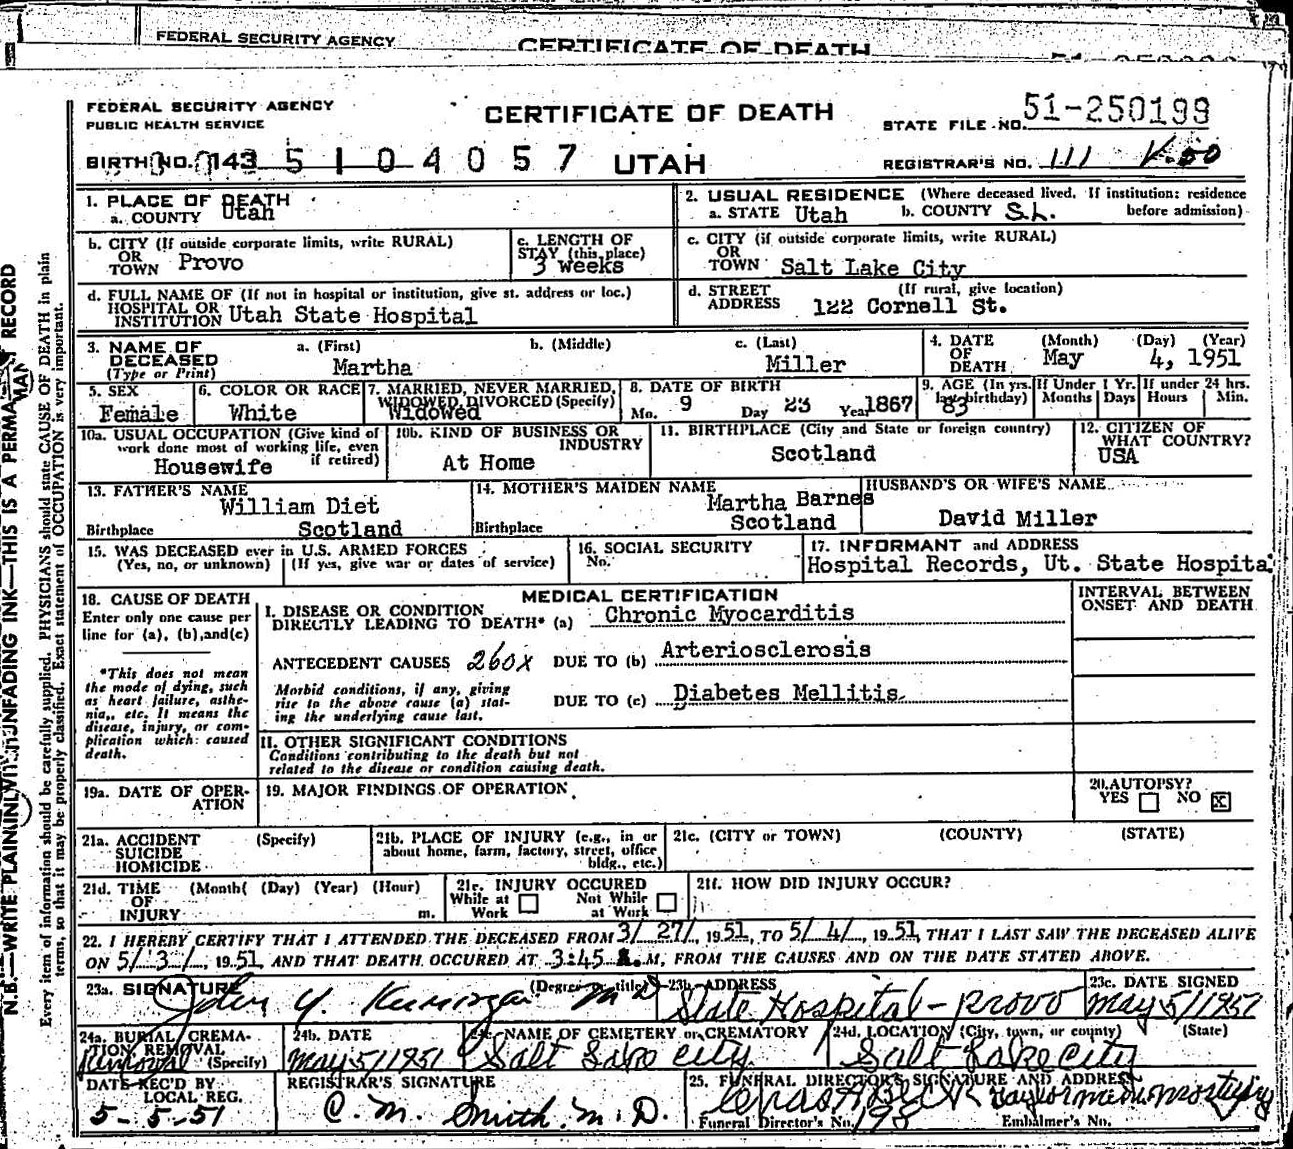 FEDERAL SECURITY AGENCY CERTIFICATE OF DEATH
FEDERAL SECURITY AGENCY
PUBLIC HEALTH SERVICE
CERTIFICATE OF DEATH
STATE FILE NO. 51-250199
BIRTH NO. 143 5 1 0 4 0 5 7 UTAH
REGISTRAR'S NO. 111 V-50
N.B.—WRITE PLAINLY WITH UNFADING INK—THIS IS A PERMANENT RECORD
Every item of information should be carefully supplied. PHYSICIANS should state CAUSE OF DEATH in plain
terms, so that it may be properly classified. Exact statement of OCCUPATION is very important.
1. PLACE OF DEATH
a. COUNTY Utah
2. USUAL RESIDENCE (Where deceased lived. If institution: residence
a. STATE Utah b. COUNTY S.L. before admission)
b. CITY (If outside corporate limits, write RURAL)
OR
TOWN Provo
c. LENGTH OF
STAY (this place)
3 weeks
c. CITY (if outside corporate limits, write RURAL)
OR
TOWN Salt Lake City
d. FULL NAME OF (If not in hospital or institution, give st. address or loc.)
HOSPITAL OR
INSTITUTION Utah State Hospital
d. STREET (If rural, give location)
ADDRESS 122 Cornell St.
3. NAME OF
DECEASED
(Type or Print)
a. (First) b. (Middle) c. (Last)
Martha Miller
4. DATE (Month) (Day) (Year)
OF
DEATH May 4, 1951
5. SEX
Female
6. COLOR OR RACE
White
7. MARRIED, NEVER MARRIED,
WIDOWED, DIVORCED (Specify)
Widowed
8. DATE OF BIRTH
Mo. 9 Day 23 Year 1867
9. AGE (In yrs. last birthday)
83
If Under 1 Yr.
Months Days
If under 24 hrs.
Hours Min.
10a. USUAL OCCUPATION (Give kind of
work done most of working life, even
if retired)
Housewife
10b. KIND OF BUSINESS OR
INDUSTRY
At Home
11. BIRTHPLACE (City and State or foreign country)
Scotland
12. CITIZEN OF
WHAT COUNTRY?
USA
13. FATHER'S NAME
William Diet
Birthplace Scotland
14. MOTHER'S MAIDEN NAME
Martha Barnes
Birthplace Scotland
HUSBAND'S OR WIFE'S NAME
David Miller
15. WAS DECEASED ever in U.S. ARMED FORCES
(Yes, no, or unknown) (If yes, give war or dates of service)
16. SOCIAL SECURITY
No.
17. INFORMANT and ADDRESS
Hospital Records, Ut. State Hospita
18. CAUSE OF DEATH
Enter only one cause per
line for (a), (b), and (c)
*This does not mean
the mode of dying, such
as heart failure, asthe-
nia, etc. It means the
disease, injury, or com-
plication which caused
death.
MEDICAL CERTIFICATION
I. DISEASE OR CONDITION
DIRECTLY LEADING TO DEATH* (a) Chronic Myocarditis
ANTECEDENT CAUSES 260X DUE TO (b) Arteriosclerosis
Morbid conditions, if any, giving
rise to the above cause (a) stat-
ing the underlying cause last.
DUE TO (c) Diabetes Mellitis
II. OTHER SIGNIFICANT CONDITIONS
Conditions contributing to the death but not
related to the disease or condition causing death.
INTERVAL BETWEEN
ONSET AND DEATH
19a. DATE OF OPER-
ATION
19. MAJOR FINDINGS OF OPERATION
20. AUTOPSY?
YES NO X
21a. ACCIDENT (Specify)
SUICIDE
HOMICIDE
21b. PLACE OF INJURY (e.g., in or
about home, farm, factory, street, office
bldg., etc.)
21c. (CITY or TOWN) (COUNTY) (STATE)
21d. TIME (Month( (Day) (Year) (Hour)
OF
INJURY m.
21e. INJURY OCCURED
While at Not While
Work at Work
21f. HOW DID INJURY OCCUR?
22. I HEREBY CERTIFY THAT I ATTENDED THE DECEASED FROM 3/ 27/, 1951, TO 5/ 4/, 1951, THAT I LAST SAW THE DECEASED ALIVE
ON 5/ 3 /, 1951, AND THAT DEATH OCCURED AT 3:45 M, FROM THE CAUSES AND ON THE DATE STATED ABOVE.
23a. SIGNATURE (Degree or title)
John Y. M D
23b. ADDRESS
State Hospital - Provo
23c. DATE SIGNED
May 5/1951
24a. BURIAL, CREMA-
TION, REMOVAL
(Specify)
Removal
24b. DATE
May 5/1951
24c. NAME OF CEMETERY or CREMATORY
Salt Lake City
24d. LOCATION (City, town, or county) (State)
Salt Lake City
DATE REC'D BY
LOCAL REG.
5-5-51
REGISTRAR'S SIGNATURE
C. M. Smith. M. D.
25. FUNERAL DIRECTOR'S SIGNATURE AND ADDRESS
Funeral Director's No. 198 Embalmer's No.